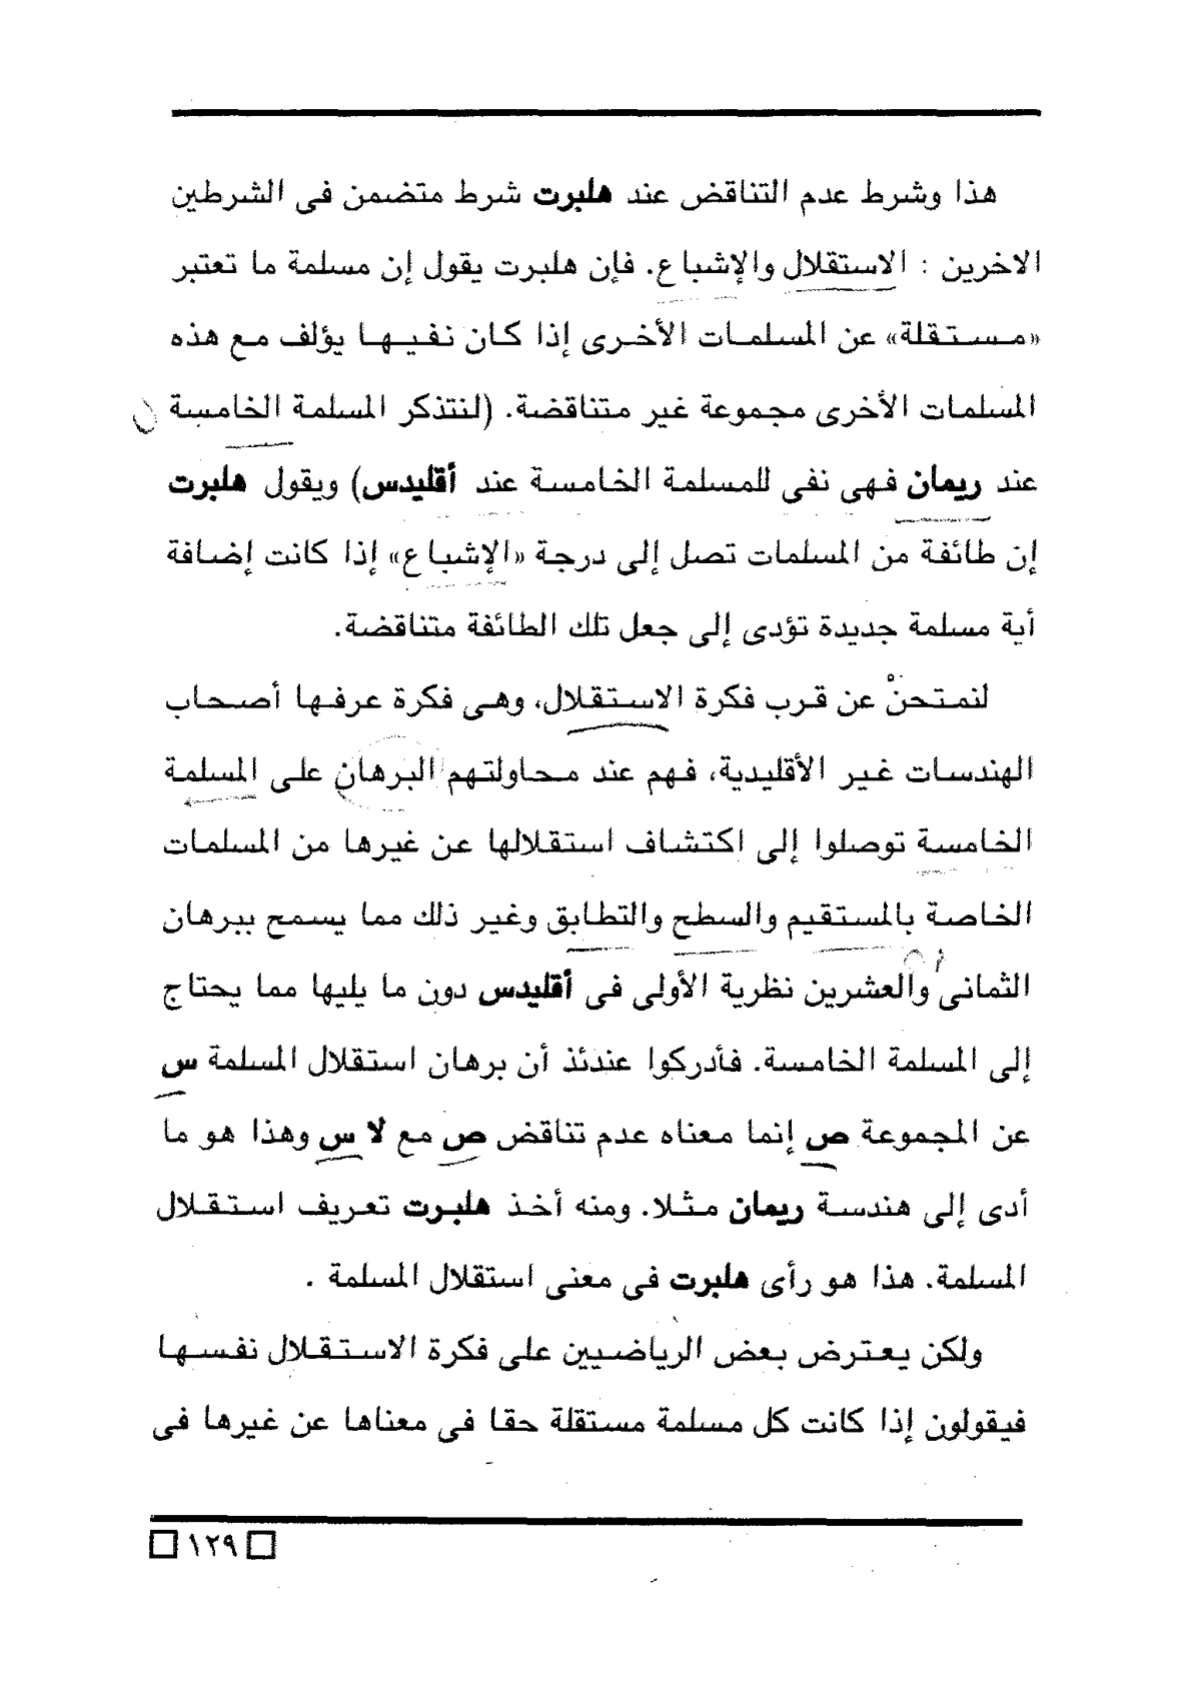 هذا وشرط عدم التناقض عند هلبرت شرط متضمن فى الشرطين
الاخرين : الاستقلال والإشباع. فإن هلبرت يقول إن مسلمة ما تعتبر
«مستقلة» عن المسلمات الأخرى إذا كان نفيها يؤلف مع هذه
المسلمات الأخرى مجموعة غير متناقضة. (لنتذكر المسلمة الخامسة
عند ريمان فهى نفى للمسلمة الخامسة عند أقليدس) ويقول هلبرت
إن طائفة من المسلمات تصل إلى درجة «الإشباع» إذا كانت إضافة
أية مسلمة جديدة تؤدى إلى جعل تلك الطائفة متناقضة.
لنمتحنْ عن قرب فكرة الاستقلال، وهى فكرة عرفها أصحاب
الهندسات غير الأقليدية، فهم عند محاولتهم البرهان على المسلمة
الخامسة توصلوا إلى اكتشاف استقلالها عن غيرها من المسلمات
الخاصة بالمستقيم والسطح والتطابق وغير ذلك مما يسمح ببرهان
الثمانى والعشرين نظرية الأولى فى أقليدس دون ما يليها مما يحتاج
إلى المسلمة الخامسة. فأدركوا عندئذ أن برهان استقلال المسلمة س
عن المجموعة ص إنما معناه عدم تناقض ص مع لا س وهذا هو ما
أدى إلى هندسة ريمان مثلا. ومنه أخذ هلبرت تعريف استقلال
المسلمة. هذا هو رأى هلبرت فى معنى استقلال المسلمة .
ولكن يعترض بعض الرياضيين على فكرة الاستقلال نفسها
فيقولون إذا كانت كل مسلمة مستقلة حقا فى معناها عن غيرها فى
١٢٩